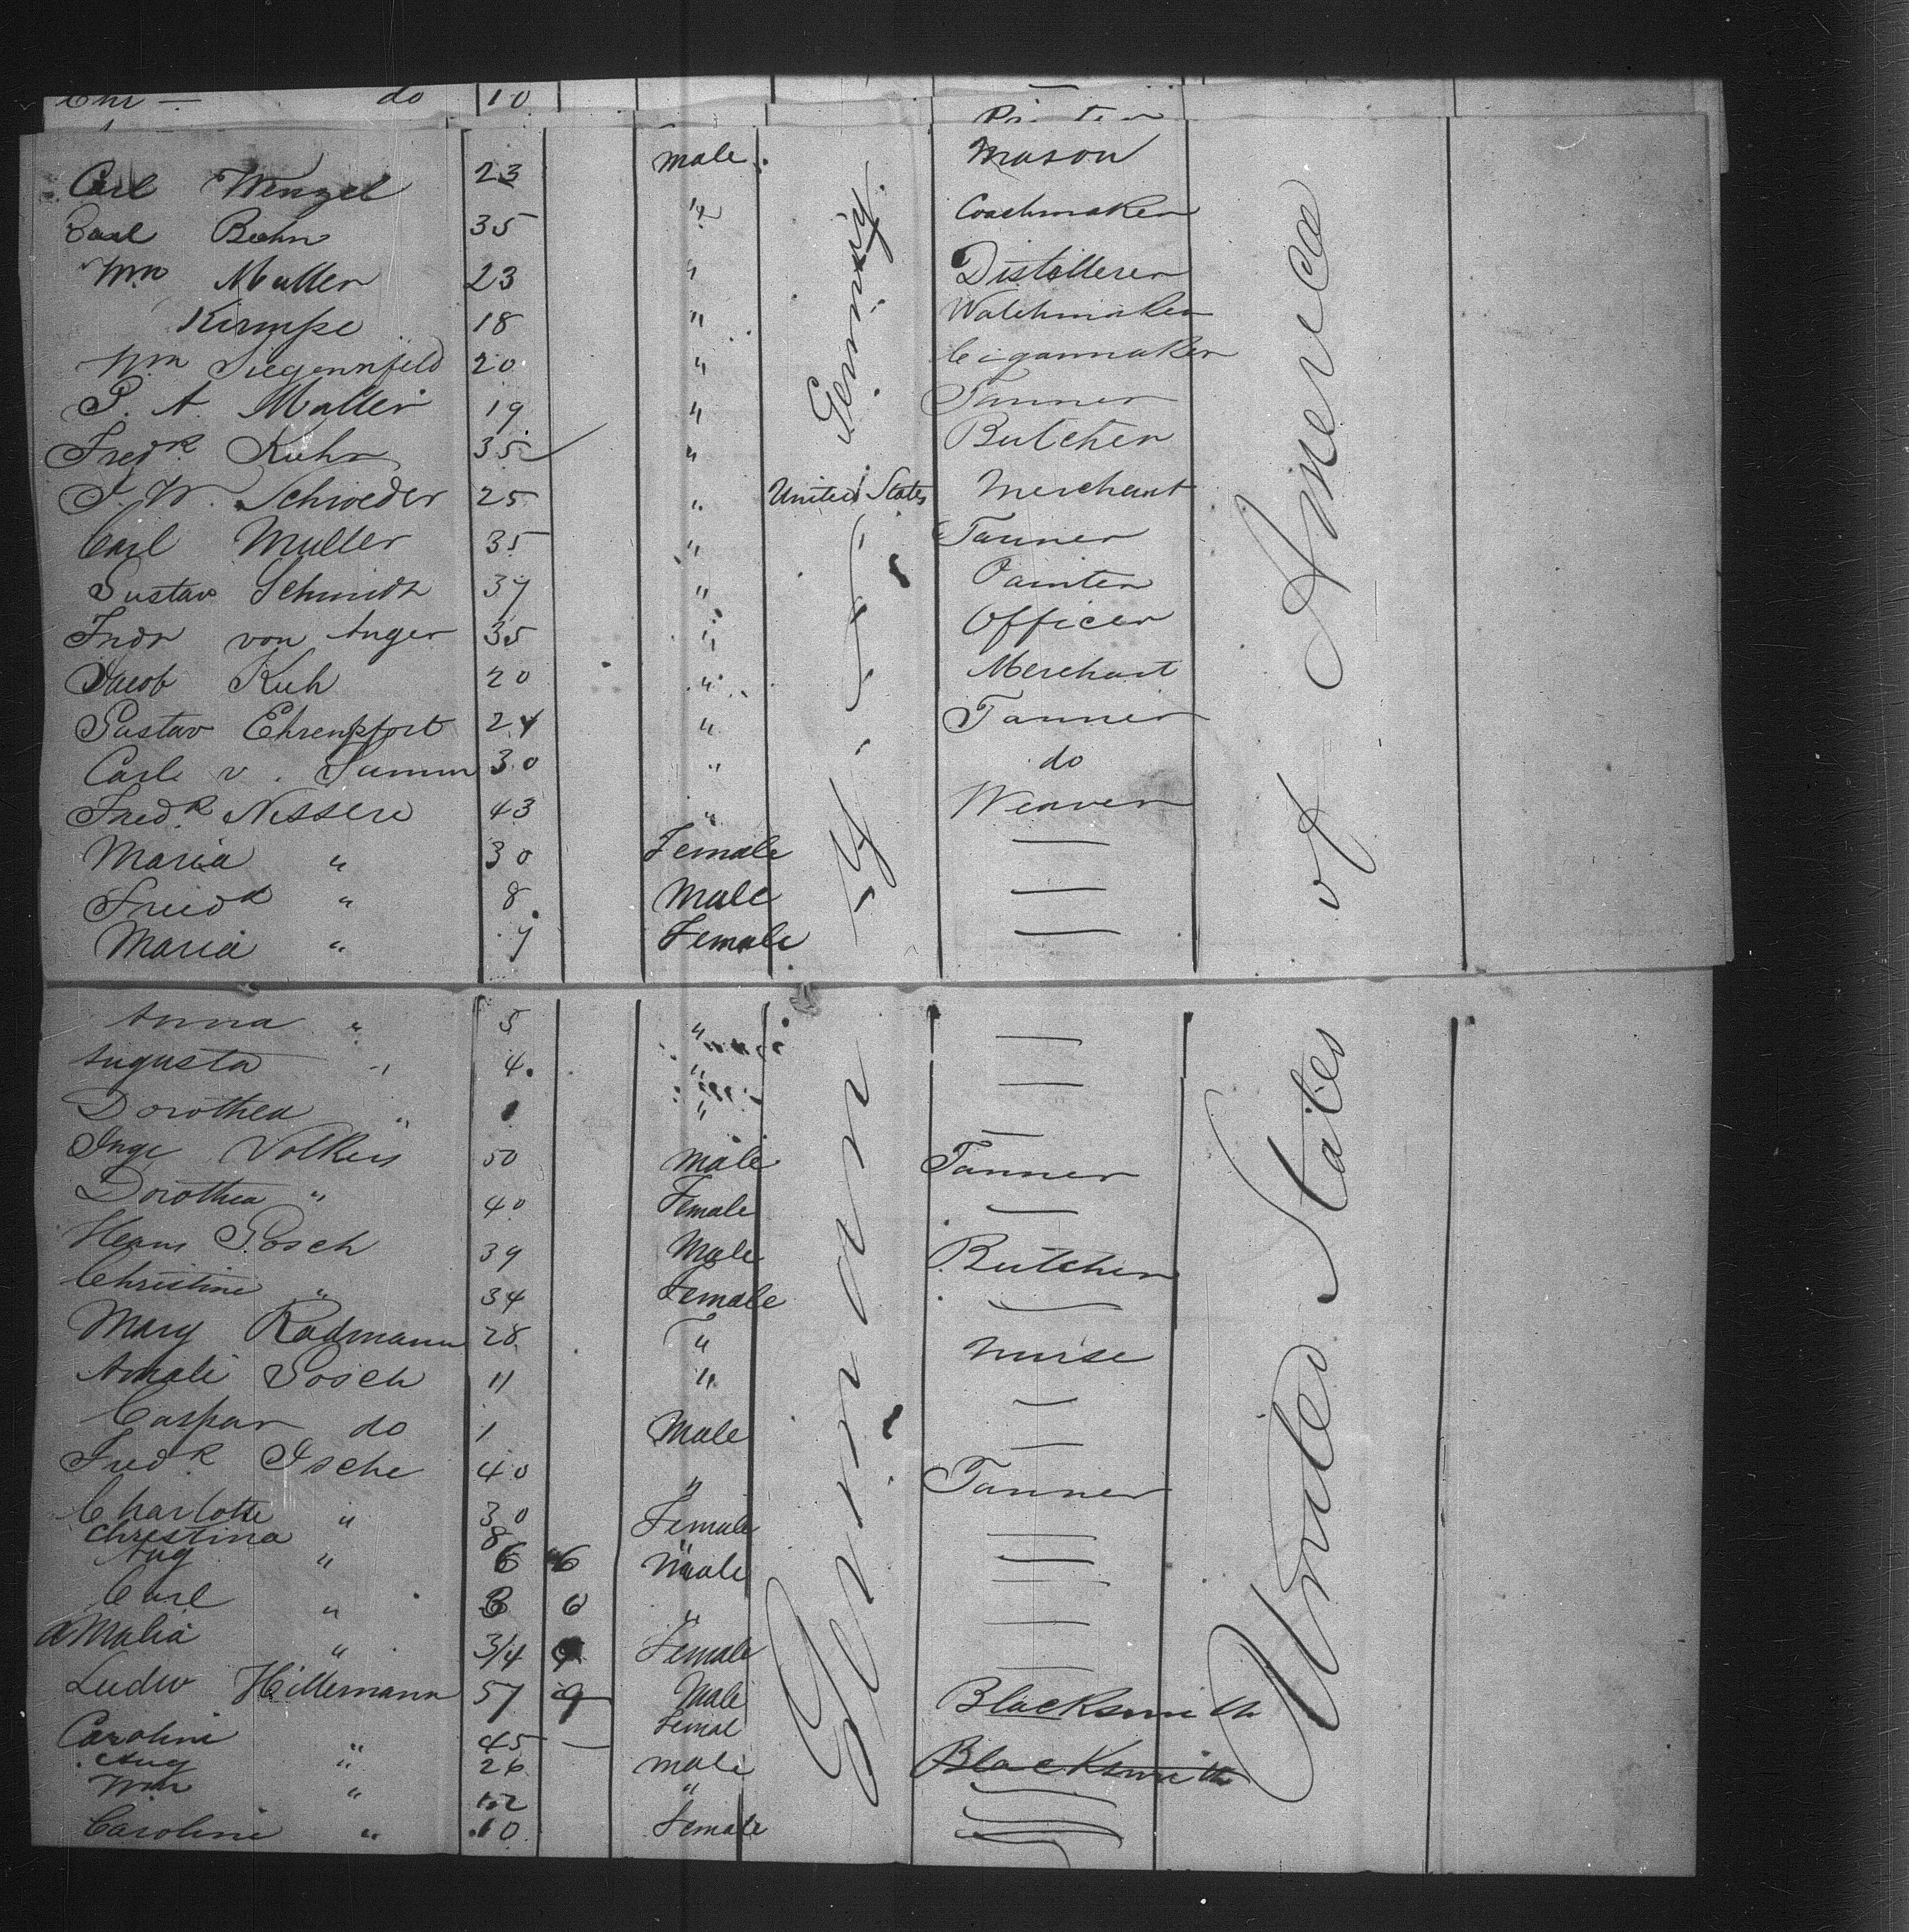 do 10
Carl Wenzel 23 male Mason
Carl Behn 35 " Coachmaker
Wm Muller 23 " Distillerer
Kempe 18 " Watchmaker
Wm Siegennfeld 20 " Cigarmaker
P. A. Muller 19 " Tanner
Fredk Kuhn 35 " Butcher
J. W. Schroeder 25 " United States Merchant
Carl Muller 35 " Tanner
Gustav Schmidt 37 " Painter
Fredr von Anger 35 " Officer
Jacob Kuh 20 " Merchant
Gustav Ehrenpfort 24 " Tanner
Carl v. 30 " do
Fredk Nessere 43 " Weaver
Maria " 30 Female —
Friedk " 8 Male —
Maria " 7 Female —
Anna " 5 " —
Augusta " 4 " —
Dorothea " 1 " —
Inge Volkers 50 Male Tanner
Dorothea " 40 Female —
Hans Posch 39 Male Butcher
Christine " 34 Female —
Mary Radmann 28 " Nurse
Amali Posch 11 " —
Caspar do 1 Male —
Fredk Ische 40 " Tanner
Charlotte " 30 Female —
Christina 8 " —
Aug " 6 6 Male —
Carl " 3 6 " —
Amalia " 3/4 9 Female —
Ludw Hillemann 57 9 Male Blacksmith
Caroline " 45 — Femal
Aug " 26 male Blacksmith
Wm " 12 " —
Caroline " 10 Female —
Germany
Germany
United States of America